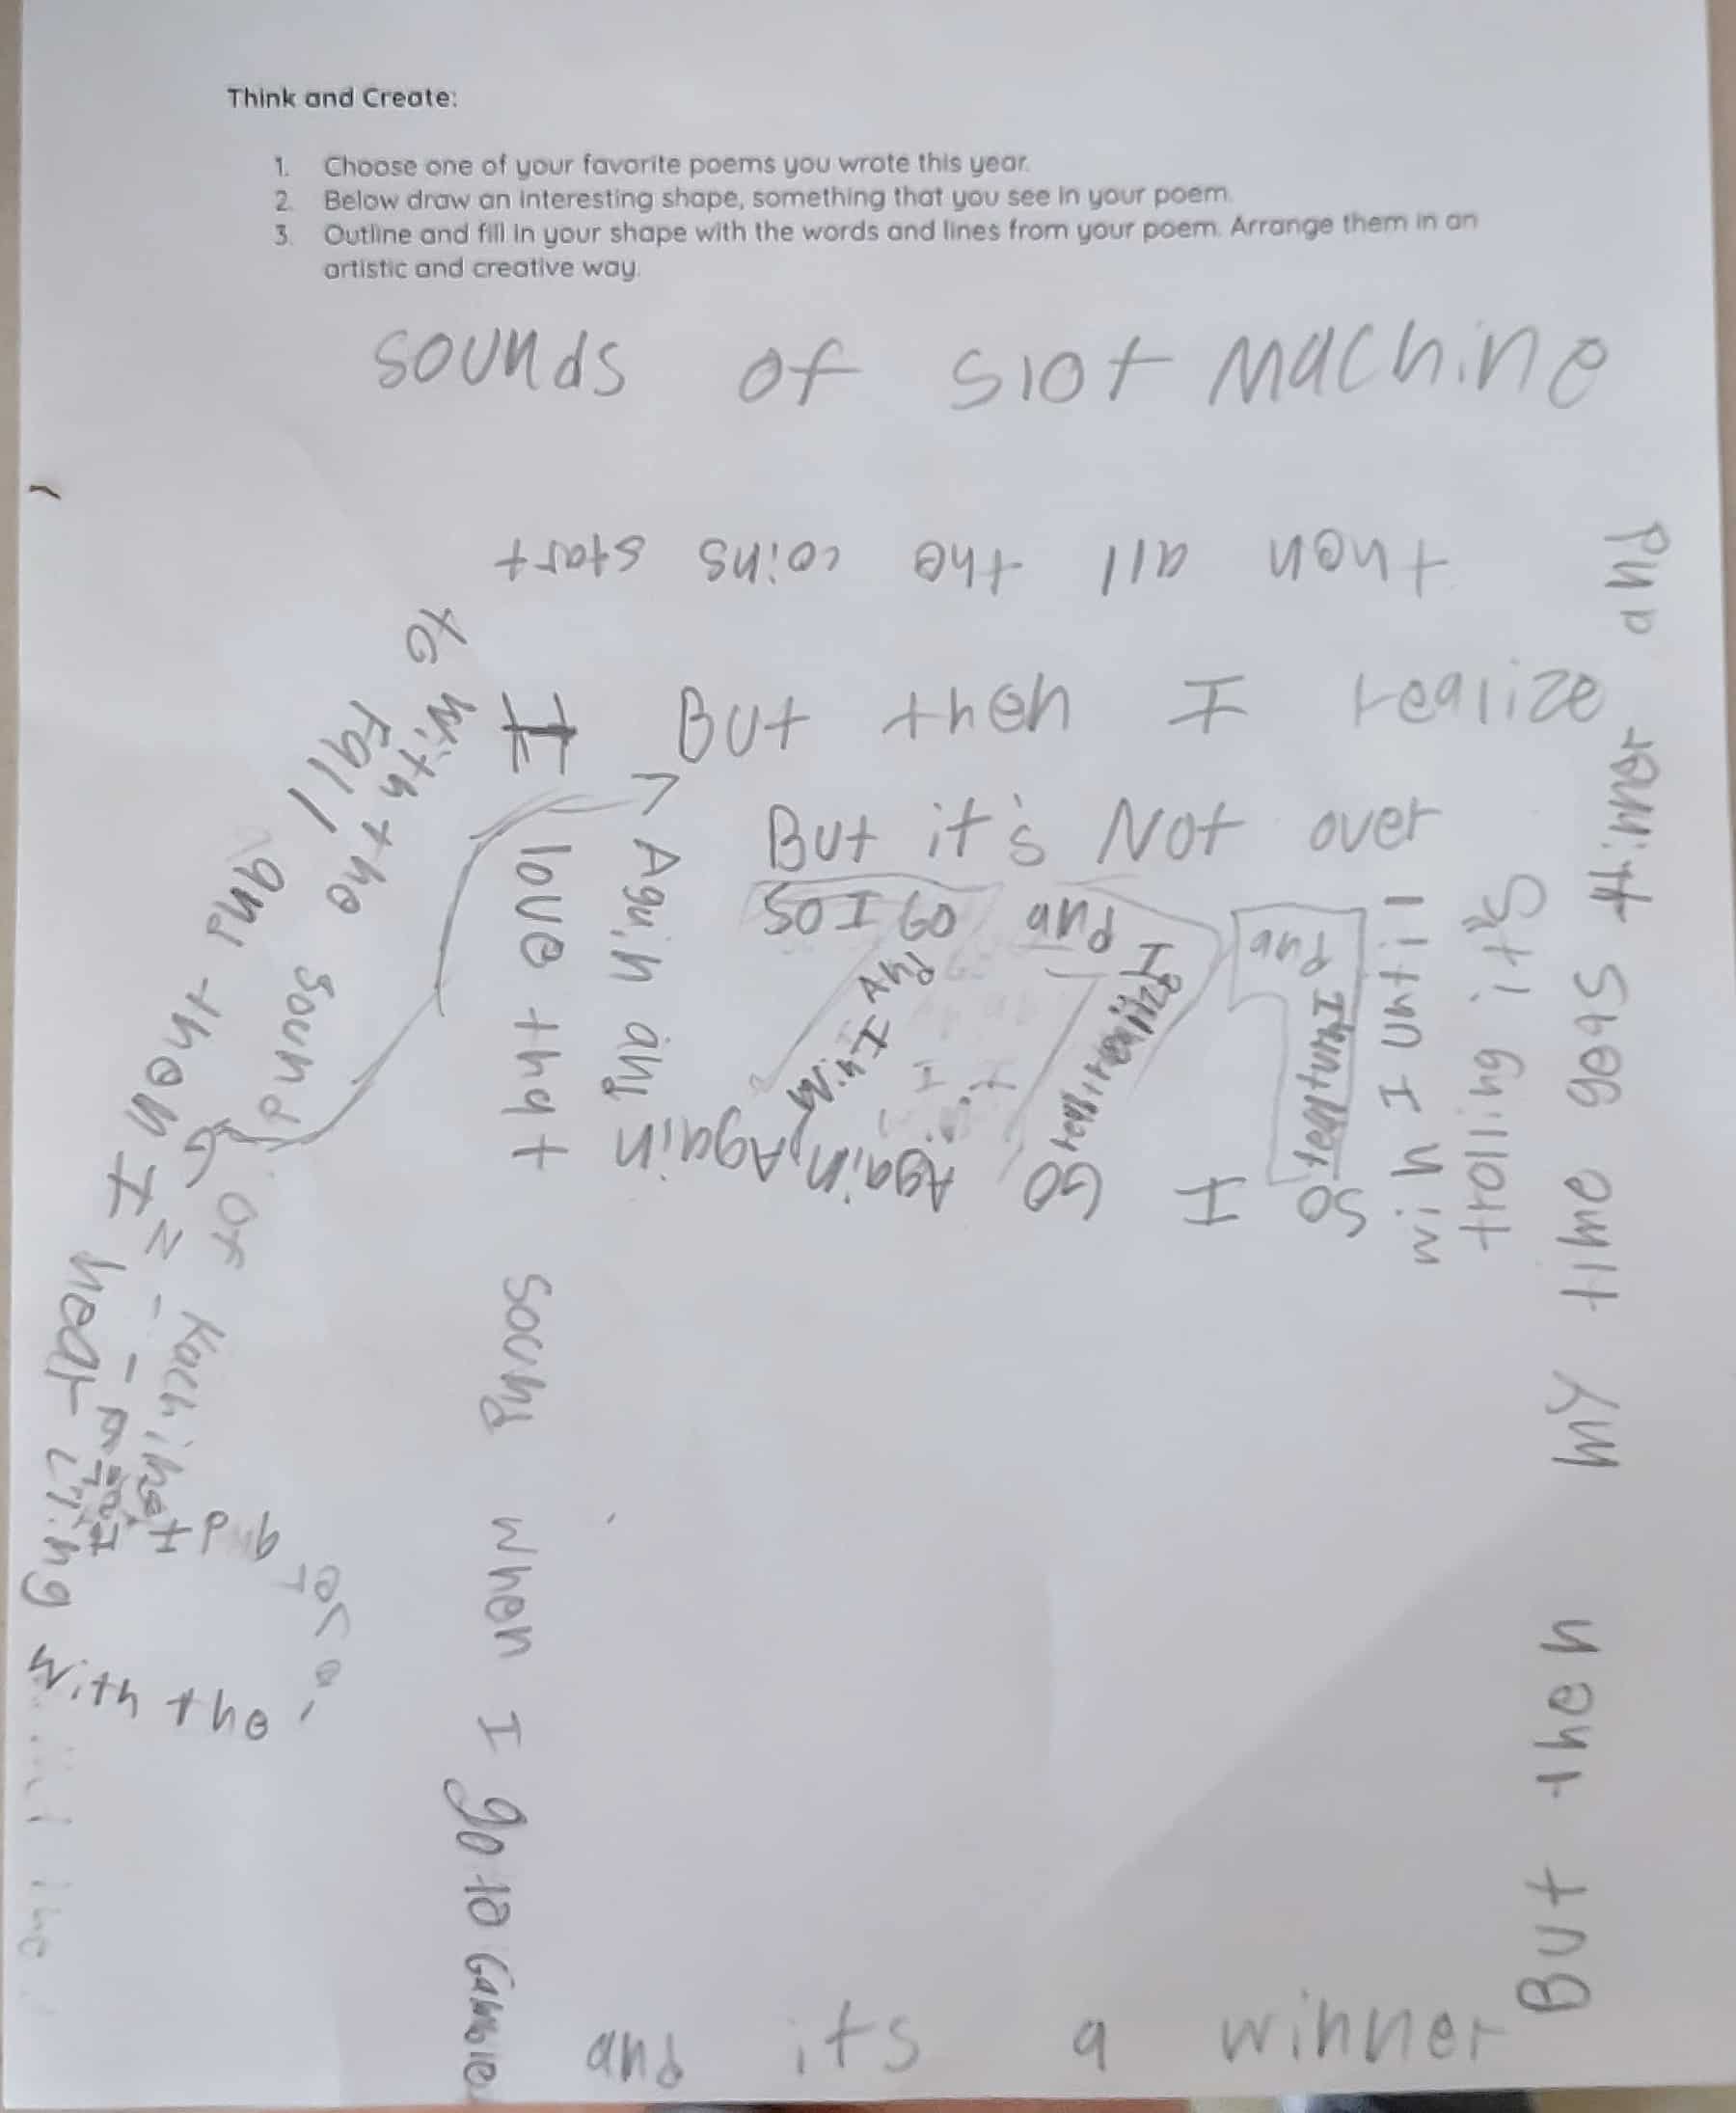 Think and Create:
1. Choose one of your favorite poems you wrote this year.
2. Below draw an interesting shape, something that you see in your poem.
3. Outline and fill in your shape with the words and lines from your poem. Arrange them in an
artistic and creative way.
sounds of slot Machine
I love that sound when I go to Gamble
and its a winner
But then MY time goes thinner and
then all the coins start
to fall
and then I hear crying with the
and
of Kaching
with the sound
Again and
But then I realize
it's rolling
But it's Not over
till I win
So I GO
Again, Again
and I win
So I GO
and
and